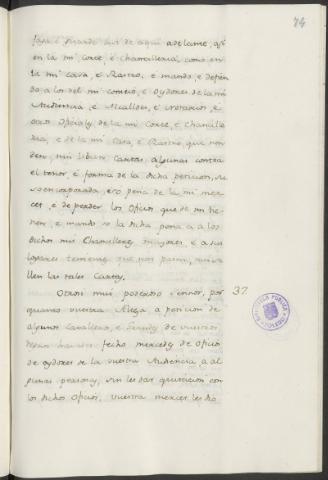 74
faga é guarde aqui adelante, asi
en la mi Corte, é Chancilleria, como en
la mi casa, é Rastro, é mando, é defien
do a los del mi consejo, é oydores de la mi
Audiencia, é Alcalldes, é Notarios, é
otros Oficiales de la mi Corte, é Chancille
ria, é de la mi Casa, é Rastro, que non
den, nin libren Cartas algunas contra
el tenor, é forma de la dicha peticion, su
so encorporada, so pena de la mi mer
cet, é de perder los Oficios que de mi tie
nen, é mando so la dicha pena a los
dichos mis Chancilleres mayores, é a sus
logares tenientes que non pasen, nin se
llen las tales Cartas.
37.
Otrosi mui poderoso Sennor, por
quanto vuestra Alteza a peticion de
algunos Cavalleros, é de vuestros
fecho mercedes de Oficios
de oydores de la vuestra Audiencia a al
gunas personas, sin les dar quitacion con
los dichos Oficios, vuestra mercet les
BIBLIOTECA PUBLICA
TOLEDO